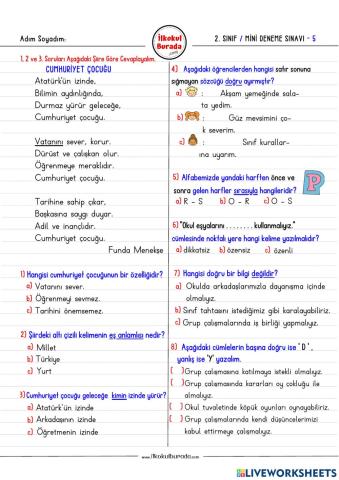 Adım Soyadım:
İlkokul
Burada
.com
2. SINIF / MİNİ DENEME SINAVI - 5
1, 2 ve 3. Soruları Aşağıdaki Şiire Göre Cevaplayalım.
CUMHURİYET ÇOCUĞU
Atatürk'ün izinde,
Bilimin aydınlığında,
Durmaz yürür geleceğe,
Cumhuriyet çocuğu.
Vatanını sever, korur.
Dürüst ve çalışkan olur.
Öğrenmeye meraklıdır.
Cumhuriyet çocuğu.
Tarihine sahip çıkar,
Başkasına saygı duyar.
Adil ve inançlıdır.
Cumhuriyet çocuğu.
Funda Menekşe
1) Hangisi cumhuriyet çocuğunun bir özelliğidir?
a) Vatanını sever.
b) Öğrenmeyi sevmez.
c) Tarihini önemsemez.
2) Şiirdeki altı çizili kelimenin eş anlamlısı nedir?
a) Millet
b) Türkiye
c) Yurt
3) Cumhuriyet çocuğu geleceğe kimin izinde yürür?
a) Atatürk'ün izinde
b) Arkadaşının izinde
c) Öğretmenin izinde
4) Aşağıdaki öğrencilerden hangisi satır sonuna
sığmayan sözcüğü doğru ayırmıştır?
a) : Akşam yemeğinde sala-
ta yedim.
b) : Güz mevsimini ço-
k severim.
c) : Sınıf kurallar-
ına uyarım.
5) Alfabemizde yandaki harften önce ve
sonra gelen harfler sırasıyla hangileridir?
a) R - S b) O - R c) O - S
P
6) "Okul eşyalarını ........ kullanmalıyız."
cümlesinde noktalı yere hangi kelime yazılmalıdır?
a) dikkatsiz b) özensiz c) özenli
7) Hangisi doğru bir bilgi değildir?
a) Okulda arkadaşlarımızla dayanışma içinde
olmalıyız.
b) Sınıf tahtasını istediğimiz gibi karalayabiliriz.
c) Grup çalışmalarında iş birliği yapmalıyız.
8) Aşağıdaki cümlelerin başına doğru ise 'D',
yanlış ise 'Y' yazalım.
( ) Grup çalışmasına katılmaya istekli olmalıyız.
( ) Grup çalışmasında kararları oy çokluğu ile
almalıyız.
( ) Okul tuvaletinde köpük oyunları oynayabiliriz.
( ) Grup çalışmalarında kendi düşüncelerimizi
kabul ettirmeye çalışmalıyız.
www.ilkokulburada.com
LIVEWORKSHEETS